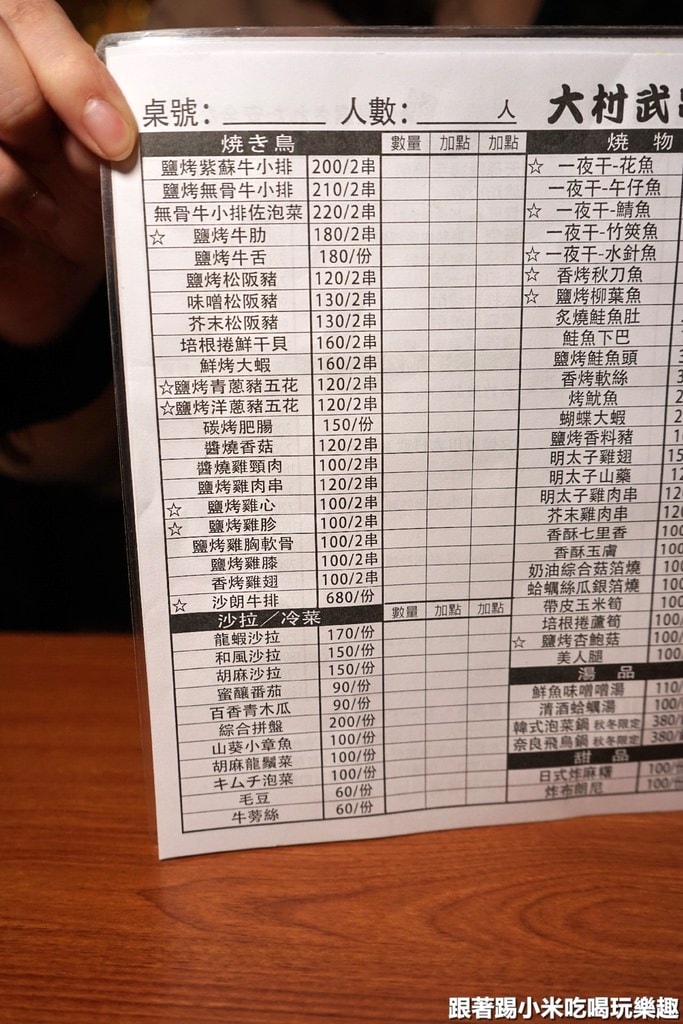 桌號: 人數: 人 大村武
焼き鳥 數量 加點 加點
鹽烤紫蘇牛小排 200/2串
鹽烤無骨牛小排 210/2串
無骨牛小排佐泡菜 220/2串
☆ 鹽烤牛肋 180/2串
鹽烤牛舌 180/份
鹽烤松阪豬 120/2串
味噌松阪豬 130/2串
芥末松阪豬 130/2串
培根捲鮮干貝 160/2串
鮮烤大蝦 160/2串
☆鹽烤青蔥豬五花 120/2串
☆鹽烤洋蔥豬五花 120/2串
碳烤肥腸 150/份
醬燒香菇 120/2串
醬燒雞頸肉 100/2串
鹽烤雞肉串 120/2串
☆ 鹽烤雞心 100/2串
☆ 鹽烤雞胗 100/2串
鹽烤雞胸軟骨 100/2串
鹽烤雞膝 100/2串
香烤雞翅 100/2串
☆ 沙朗牛排 680/份
沙拉／冷菜 數量 加點 加點
龍蝦沙拉 170/份
和風沙拉 150/份
胡麻沙拉 150/份
蜜釀番茄 90/份
百香青木瓜 90/份
綜合拼盤 200/份
山葵小章魚 100/份
胡麻龍鬚菜 100/份
キムチ泡菜 100/份
毛豆 60/份
牛蒡絲 60/份
焼 物
☆ 一夜干-花魚
一夜干-午仔魚
☆ 一夜干-鯖魚
一夜干-竹筴魚
☆一夜干-水針魚
☆ 香烤秋刀魚
☆ 鹽烤柳葉魚
炙燒鮭魚肚
鮭魚下巴
鹽烤鮭魚頭
香烤軟絲
烤魷魚
蝴蝶大蝦
鹽烤香料豬
明太子雞翅
明太子山藥
明太子雞肉串
芥末雞肉串
香酥七里香
香酥玉膚
奶油綜合菇箔燒 100
蛤蠣絲瓜銀箔燒 100
帶皮玉米筍 100
培根捲蘆筍 100/
☆ 鹽烤杏鮑菇 100/
美人腿 100
湯 品
鮮魚味噌噌湯 110/
清酒蛤蠣湯 100/
韓式泡菜鍋 秋冬限定 380/
奈良飛鳥鍋 秋冬限定 380/
甜 品
日式炸麻糬 100/
炸布朗尼 100/
跟著踢小米吃喝玩樂趣